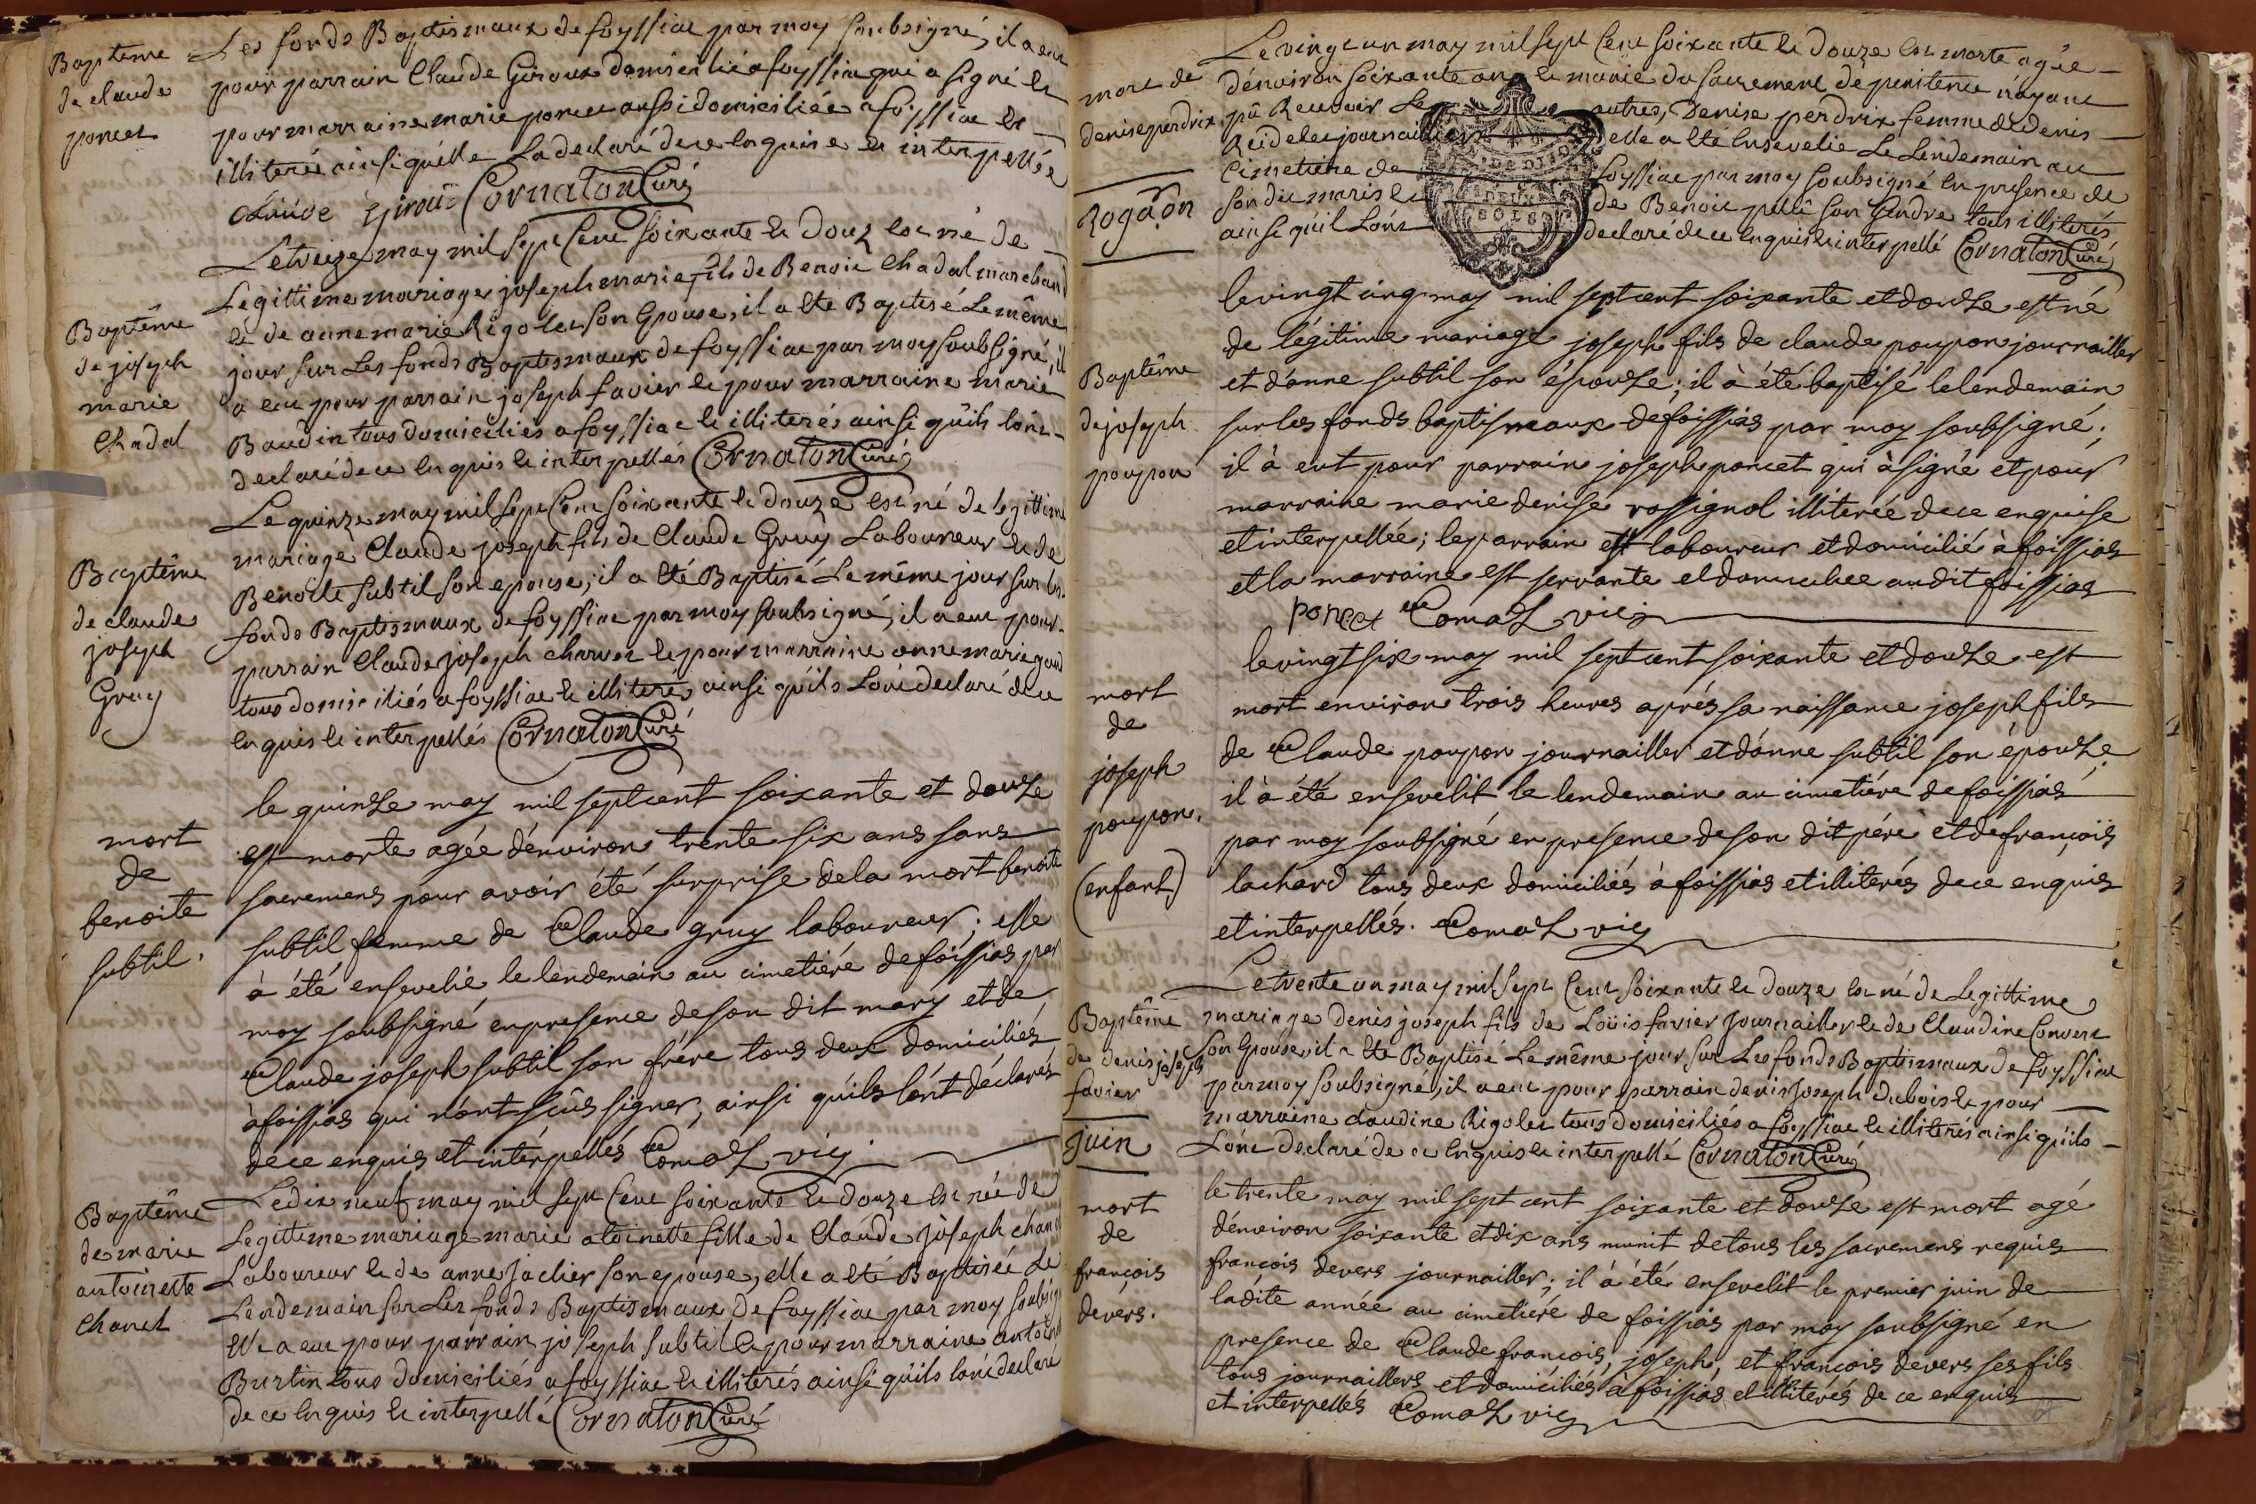 Baptême
de claude
poncet
Les fonds Baptismaux de foyssiac par moy soubsigné, il a eut
pour parrain Claude Giroux domicilié a foyssiac qui a signé et
pour marraine marie poncet aussi domiciliée a foyssiac et
illiterée ainsi quélle La declaré de ce Enquise et interpellée
claude giroux Cornaton Curé
Baptême
de joseph
marie
Chadal
Le treize may mil sept Cent soixante et Douz est né de
Legittime mariage joseph marie fils de Benoit Chadal marchand
et de anne marie Rigolet son Epouse, il a eté Baptisé Le même
jour sur Les fonds Baptismaux de foyssiac par moy soubsigné, il
a eut pour parrain joseph favier et pour marraine marie
Baudin tous domiciliés a foyssiac et illiterés ainsi quils lont
declaré de ce Enquis et interpellés Cornaton Curé
Baptême
de claude
joseph
Gruy
Le quinze may mil sept Cent soixante et douze est né de legittime
mariage Claude joseph fils de Claude Gruy Laboureur et de
Benoite subtil son epouse; il a eté Baptisé Le même jour sur les
fonds Baptismaux de foyssiac par moy soubsigné, il a eut pour
parrain Claude joseph charvet et pour marraine anne marie
tous domiciliés a foyssiac et illiterés ainsi quils Lont declaré de ce
Enquis et interpellés Cornaton Curé
mort
de
benoite
subtil.
le quinze may mil sept cent soixante et douze
est morte agée d'environ trente six ans sans
sacremens pour avoir été surprise de la mort benoite
subtil femme de Claude gruy laboureur; elle
à été ensevelie le lendemain au cimetiére de foissias par
moy soubsigné en presence de son dit mary et de
Claude joseph subtil son frére tous deux domiciliés
à foissias qui n'ont sçûs signer, ainsi quils lónt déclarés
de ce enquis et intérpellés Comas vic
Baptême
de marie
antoinette
Chanel
Le dix neuf may mil sept Cent soixante et douze est née de
Legittime mariage marie atoinette fille de Claude joseph chanel
Laboureur et de anne Jaclier son epouse, elle a eté Baptisée Le
Lendemain sur Les fonds Baptismaux de foyssiac par moy soubsig
Elle a eut pour parrain joseph subtil et pour marraine antoine
Burtin tous domiciliés a foyssiac et illiterés ainsi quils lont declaré
de ce Enquis et interpellé Cornaton Curé
mort de
denise perdrix
Le vingt un may mil sept Cent soixante et douze est morte agée
dénviron soixante ans et munie du sacrement de penitence nayant
pû Recevoir Les autres, Denise perdrix femme de denis
journailler elle a eté Ensevelie Le Lendemain au
Cimetiere de foyssiac par moy soubsigné En presence de
Rogãon
son dit maris et de Benoit son Gendre tous illiterés
ainsi quil Lont declaré de ce Enquis et interpellé Cornaton Curé
DEUX
SOLS
Baptême
de joseph
poupon
le vingt cinq may mil sept cent soixante et douze est né
de légitime mariage joseph fils de claude poupon journailler
et d'anne subtil son épouse; il à été baptisé le lendemain
sur les fonds baptismaux de foissias par moy soubsigné;
il à eut pour parrain joseph poncet qui à signé et pour
marraine marie denise rossignol illiterée de ce enquise
et interpellée; le parrain est laboureur et domicilié à foissias
et la marraine est servante et domiciliée audit foissias
poncet Comas vic
mort
de
joseph
poupon.
(enfant)
le vingt six may mil sept cent soixante et douze est
mort environ trois heures aprés sa naissance joseph fils
de Claude poupon journailler et dánne subtil son épouze
il à été ensevelit le lendemain au cimetiére de foissias
par moy soubsigné en presence de son dit pére et de françois
lachard tous deux domiciliés à foissias et illitérés de ce enquis
et interpellés. Comas vic
Baptême
de denis joseph
favier
Le trente un may mil sept Cent soixante et douze est né de Legittime
mariage denis joseph fils de Loüis favier Journailler et de Claudine Convert
son Epouse, il a eté Baptisé Le même jour sur Les fonds Baptismaux de foyssiac
par moy soubsigné, il a eut pour parrain denis Joseph dubois et pour
marraine claudine Rigolet tous domiciliés a foyssiac et illiterés ainsi quils
Lont declaré de ce Enquis et interpellé Cornaton Curé
juin
mort
de
françois
devers.
le trente may mil sept cent soixante et douze est mort agé
dénviron soixante et dix ans munit de tous les sacremens requis
françois devers journailler; il à été ensevelit le premier juin de
ladite année au cimetiére de foissias par moy soubsigné en
presence de Claude françois, joseph, et françois devers ses fils
tous journaillers et domiciliés à foissias et illiterés de ce enquis
et interpellés Comas vic